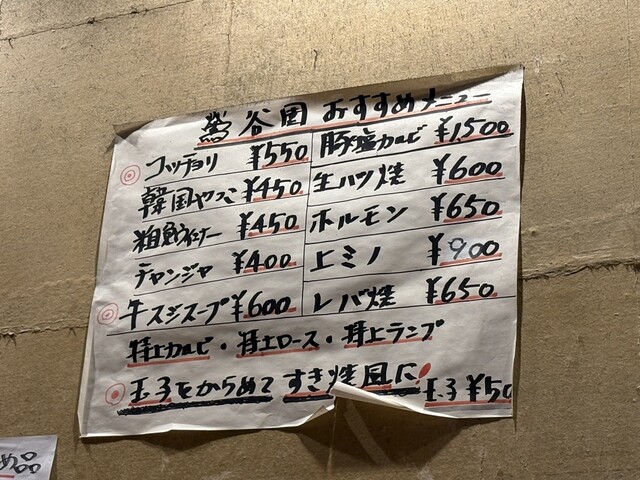 鶯谷園 おすすめメニュー
コッチョリ ¥550
韓国やっこ ¥450
粗挽ウインナー ¥450
チャンジャ ¥400
牛スジスープ ¥600
豚塩カルビ ¥1,500
生ハツ焼 ¥600
ホルモン ¥650
上ミノ ¥900
レバ焼 ¥650
特上カルビ・特上ロース・特上ランプ
玉子をからめて すき焼風に! 玉子 ¥50
め品